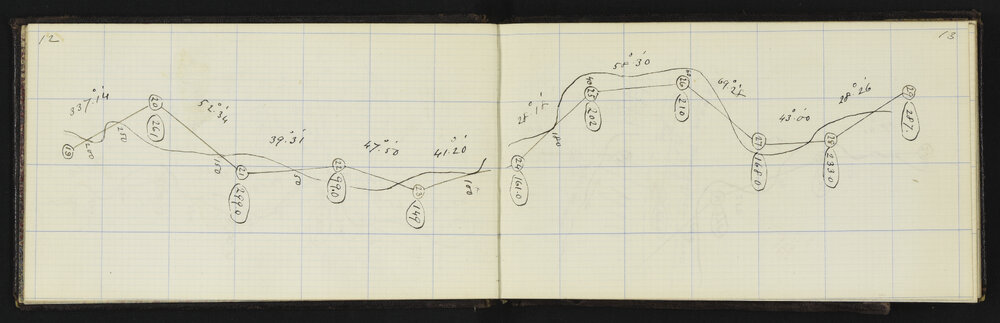 12
337°.14'
52°.34'
39°.31'
47°.50'
41°.20'
19
200
250
20
261
150
21
2990
50
22
990
23
149
180
13
28°.15'
58°.30'
69°.25'
43°.00'
28°.26'
24
1610
180
25
202
26
210
27
1680
28
2330
29
287.